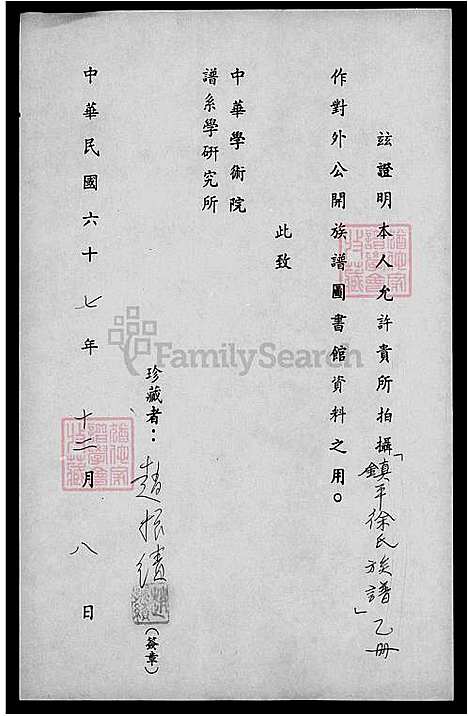 玆證明本人允許貴所拍攝「鎮平徐氏族譜」乙册
作對外公開族譜圖書館資料之用。
此致
中華學術院
譜系學研究所
珍藏者：趙振績（簽章）
中華民國六十七年十二月八日
FamilySearch